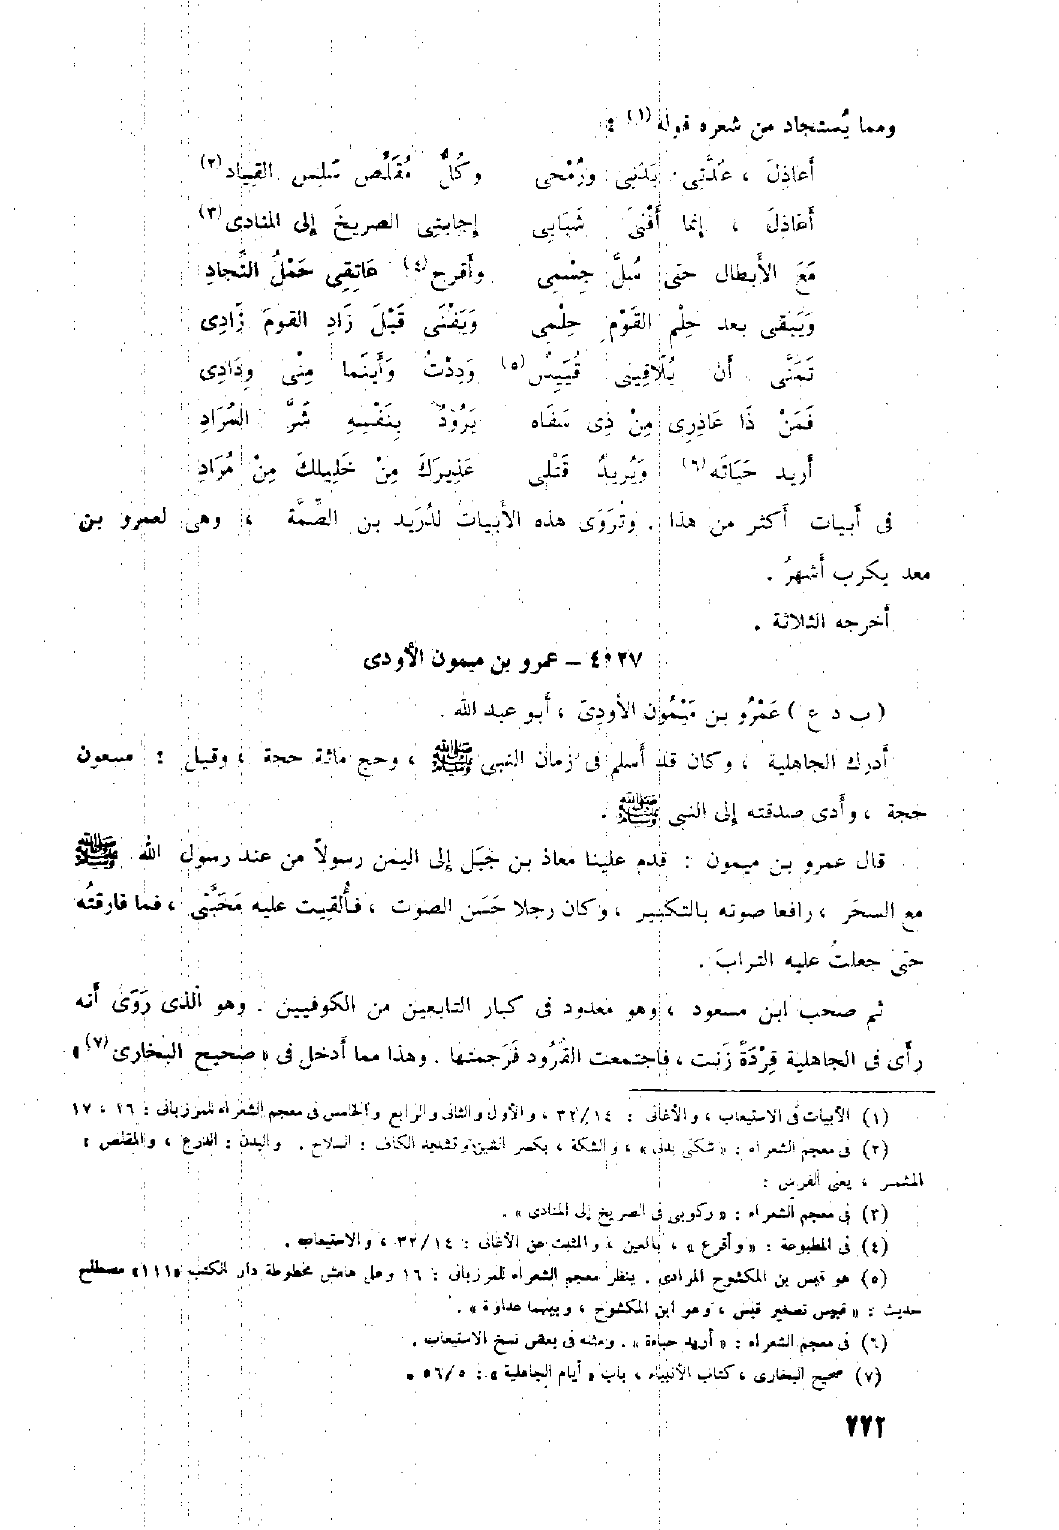 ومما يُستجاد من شعره قوله (١) :
أَعاذِلَ ، عُدَّتِى بَدَنِى وَرُمْحِى وكُلُّ مُقَلِّصٍ سَلِسِ القِيَاد(٢)
أَعَاذِلَ ، إنما أَفْنَى شَبَابِى إجابتِى الصريخَ إلى المنادى(٣)
مَعَ الأَبطال حتى سُلَّ جِسْمِى وأقرح(٤) عَاتِقِى حَمْلُ النِّجَادِ
وَيَبقى بعد حِلْمِ القَوْمِ حِلْمِى وَيَفْنَى قَبْلَ زَادِ القومِ زَادِى
تَمَنَّى أَن يُلَاقِينى قُيَيْسٌ(٥) وَدِدْتُ وَأَينَمَا مِنِّى وِدَادِى
فَمَنْ ذَا عَاذِرِى مِنْ ذِى سَفَاه يَرُودُ بِنَفْسِهِ شَرَّ المُرَادِ
أريد حَيَاتَه(٦) وَيُرِيدُ قَتْلِى عَذِيرَكَ مِنْ خَلِيلِكَ مِنْ مُرَادِ
فى أَبيات أكثر من هذا . وتُرْوَى هذه الأَبيات لدُرَيد بن الصِّمَّة ، وهى لعمرو بن
معد يكرب أشهرُ .
أخرجه الثلاثة .
٤٠٢٧ – عمرو بن ميمون الأودى
( ب د ع ) عَمْرُو بن مَيْمُون الأودِىّ ، أبو عبد الله .
أدرك الجاهلية ، وكان قد أسلم فى زمان النبى ﷺ ، وحج مائة حجة ، وقيل : سبعون
حجة ، وأدى صدقته إلى النبى ﷺ .
قال عمرو بن ميمون : قدم علينا معاذ بن جَبَل إلى اليمن رسولاً من عند رسول الله ﷺ
مع السحَر ، رافعا صوته بالتكبير ، وكان رجلا حَسَن الصوت ، فأُلقِيت عليه مَحَبَّتى ، فما فارقتُه
حتى جعلتُ عليه الترابَ .
ثم صحب ابن مسعود ، وهو معدود فى كبار التابعين من الكوفيين . وهو الذى رَوَى أنه
رأى فى الجاهلية قِرْدَةً زَنت ، فاجتمعت القُرُود فَرَجمتها . وهذا مما أدخل فى « صحيح البخارى(٧) »
(١) الأبيات فى الاستيعاب ، والأغانى : ٣٢/١٤ ، والأول والثانى والرابع والخامس فى معجم الشعراء للمرزبانى : ١٦ ، ١٧
(٢) فى معجم الشعراء : « شكتى بدنى » ، والشكة ، بكسر الشين وتشديد الكاف : السلاح . والبدن : الدرع ، والمقلص :
المشمر ، يعنى الفرس :
(٣) فى معجم الشعراء : « ركوبى فى الصريخ إلى المنادى » .
(٤) فى المطبوعة : « وأقرع » ، بالعين ، والمثبت عن الأغانى : ٣٢/١٤ ، والاستيعاب .
(٥) هو قيس بن المكشوح المرادى . ينظر معجم الشعراء للمرزبانى : ١٦ وعلى هامش مخطوطة دار الكتب «١١١» مصطلح
حديث : « قييس تصغير قيس ، وهو ابن المكشوح ، وبينهما عداوة » .
(٦) فى معجم الشعراء : « أريد حباءه » . ومثله فى بعض نسخ الاستيعاب .
(٧) صحيح البخارى ، كتاب الأنبياء ، باب « أيام الجاهلية » : ٥٦/٥ .
٢٧٢